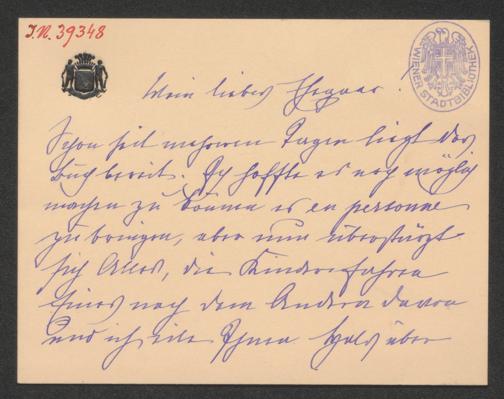 I.N. 39348
WIENER STADTBIBLIOTHEK
Mein lieber
Schon seit mehreren Tagen liegt das
Buch bereit. Ich hoffte es noch möglich
machen zu können es en personne
zu bringen, aber nun überstürzt
sich Alles, die Kinder fahren
Eines nach dem Andern davon
und ich eile Ihnen über